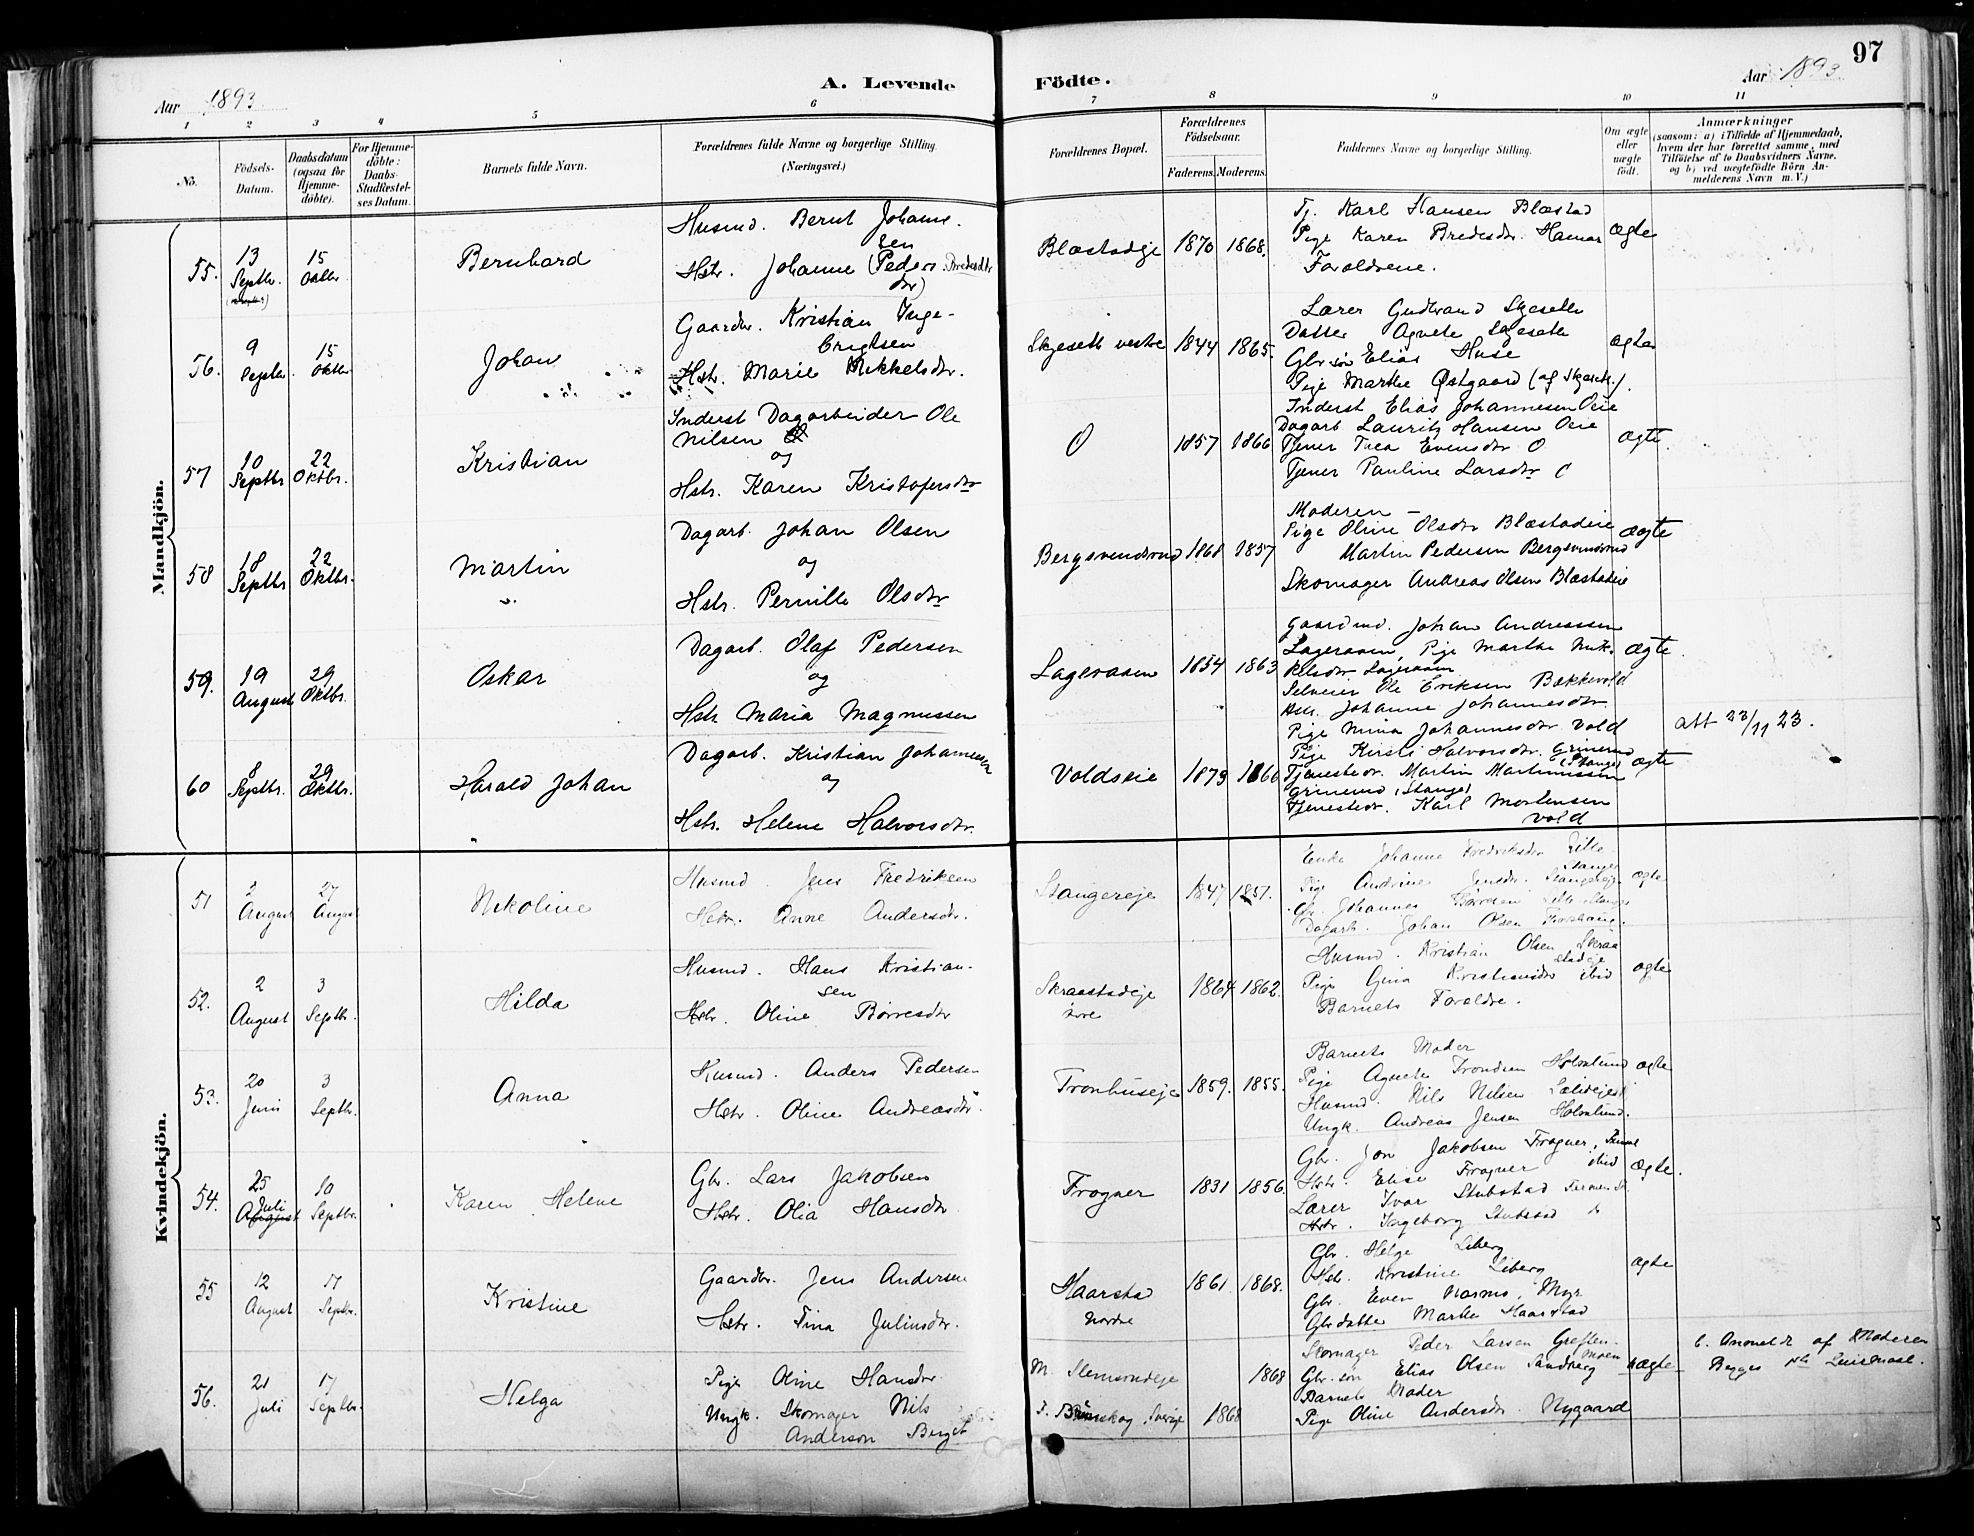 97
Aar 1893.
A. Levende
Födte.
Aar 1893.
1 2 3 4 5 6 7 8 9 10 11
No.
Födsels-Datum.
Daabsdatum (ogsaa for Hjemme-döbte).
For Hjemme-döbte: Daabs-Stadfæstel-ses Datum.
Barnets fulde Navn.
Forældrenes fulde Navne og borgerlige Stilling. (Næringsvei.)
Forældrenes Bopæl.
Forældrenes Födselsaar.
Faderens.
Moderens.
Faddernes Navne og borgerlige Stilling.
Om ægte eller uægte födt.
Anmærkninger
(saasom: a) i Tilfælde af Hjemmedaab,
hvem der har forrettet samme, med
Tilföielse af to Daabsvidners Navne.
og b) ved uægtefödte Börn An-
melderens Navn m. V.)
Mandkjön.
55.
13 Septbr.
15 Oktbr.
Bernhard
Husmd. Bernt Johanne-
sen
Hstr. Johanne (Peders Bredesdtr
dtr)
Blæstadeje
1870 1868.
Tj. Karl Hansen Blæstad
Pige Karen Bredesdtr. Hamar
Forældrene.
ægte
56.
9 Septbr.
15 Oktbr.
Johan
Gaardbr. Kristian Inge-
brigtsen
Hstr. Marie Mikkelsdtr.
Skjeseth vestre
1844 1865.
Lærer Gudbrand Skjeseth
Datter Agnete Skjeseth
Gbr søn Elias Huse
Pige Marthe Østgaard (af Skjeseth).
ægte
57
10 Septbr
22 Oktbr.
Kristian
Inderst Dagarbeider Ole
Nilsen
og
Hstr. Karen Kristofersdtr
O
1857 1866
Inderst Elias Johannesen Oeie
Dagarb Lauritz Hansen Oeie
Tjener Thea Evensdtr O
Tjener Pauline Larsdtr O
ægte.
58
18 Septbr
22 Oktbr.
Martin
Dagarb. Johan Olsen
og
Hstr. Pernille Olsdtr
Bergsvendsrud
1868 1857
Moderen –
Pige Oline Olsdtr Blæstadeie
Martin Pedersen Bergsvendsrud
Skomager Andreas Olsen Blæstadeie
ægte
59.
19 August
29 Oktbr.
Oskar
Dagarb. Olaf Pedersen
og
Hstr Maria Magnussen
Lageraaen
1854 1863
Gaardmd. Johan Andreassen
Lageraaen, Pige Marthe Mik-
kelsdtr Lageraaen
Selveier Ole Eriksen Bækkevold
Hstr. Johanne Johannesdtr
ægte.
60
8 Septbr.
29 Oktbr.
Harald Johan
Dagarb. Kristian Johannesen
og
Hstr. Helene Halvorsdtr.
Voldseie
1873 1866
Pige Mina Johannesdtr Vold
Pige Kirsti Halvorsdtr. Grimerud
(Stange)
Tjenestedr. Martin Martinussen
Grimerud (Stange)
Tjenestedr. Karl Mortensen
Vold
ægte
att 23/11 23.
Kvindekjön.
51
2 August
27 August
Nikoline
Husmd Jens Fredriksen
Hstr. Anne Andersdtr.
Stangereje
1847 1851.
Enke Johanne Fredriksdtr Lille-
Stange
Pige Andrine Jensdtr. Stangereje
Gbr. Johannes Børresen Lille Stange
Dagarb. Johan Olsen
ægte
52.
2 August
3 Septbr.
Hilda
Husmd. Hans Kristian-
sen
Hstr. Oline Børresdtr
Skraastadeje
1864 1862.
Husmd. Kristian Olsen Skraa
stadeje
Pige Gina Kristiansdtr ibid
Barnets Forældre.
ægte
53.
20 Juni
3 Septbr.
Anna
Husmd. Anders Pedersen
Hstr. Oline Andreasdtr.
Tronhuseje
1859. 1855.
Barnets Moder
Pige Agnete Trondsen Holmlund
Husmd. Nils Nilsen
Ungk. Andreas Jensen Holmlund.
ægte
54.
25 Juli August
10 Septbr.
Karen Helene
Gbr. Lars Jakobsen
Hstr. Olia Hansdtr
Frogner
1831 1856.
Gbr. Jon Jakobsen Frogner,
Hstr. Elise Frogner ibid
Lærer Ivar Stubstad
Hstr. Ingeborg Stubstad
ægte.
55
12 August
17 Septbr.
Kristine
Gaardbr. Jens Andersen
Hstr. Tina Juliusdtr.
Haarsta
nordre
1861 1868.
Gbr. Helge Liberg
Hstr. Kristine Liberg
Gbr. Even Myr
Gbrdatter Marthe Haarstad
ægte
56.
21 Juli
17 Septbr.
Helga
Pige Oline Hansdtr.
Ungk. Skomager Nils
Anderson Berget
M. Stensrudeje
1868
F. Brunskog, Sverige
1868
Skomager Peder Larsen Greften-
moen
Gbr søn Elias Olsen Sandberg
Barnets Moder
Pige Oline Andersdtr. Nygaard
uægte
b. Anmeldt af Moderen
Begges